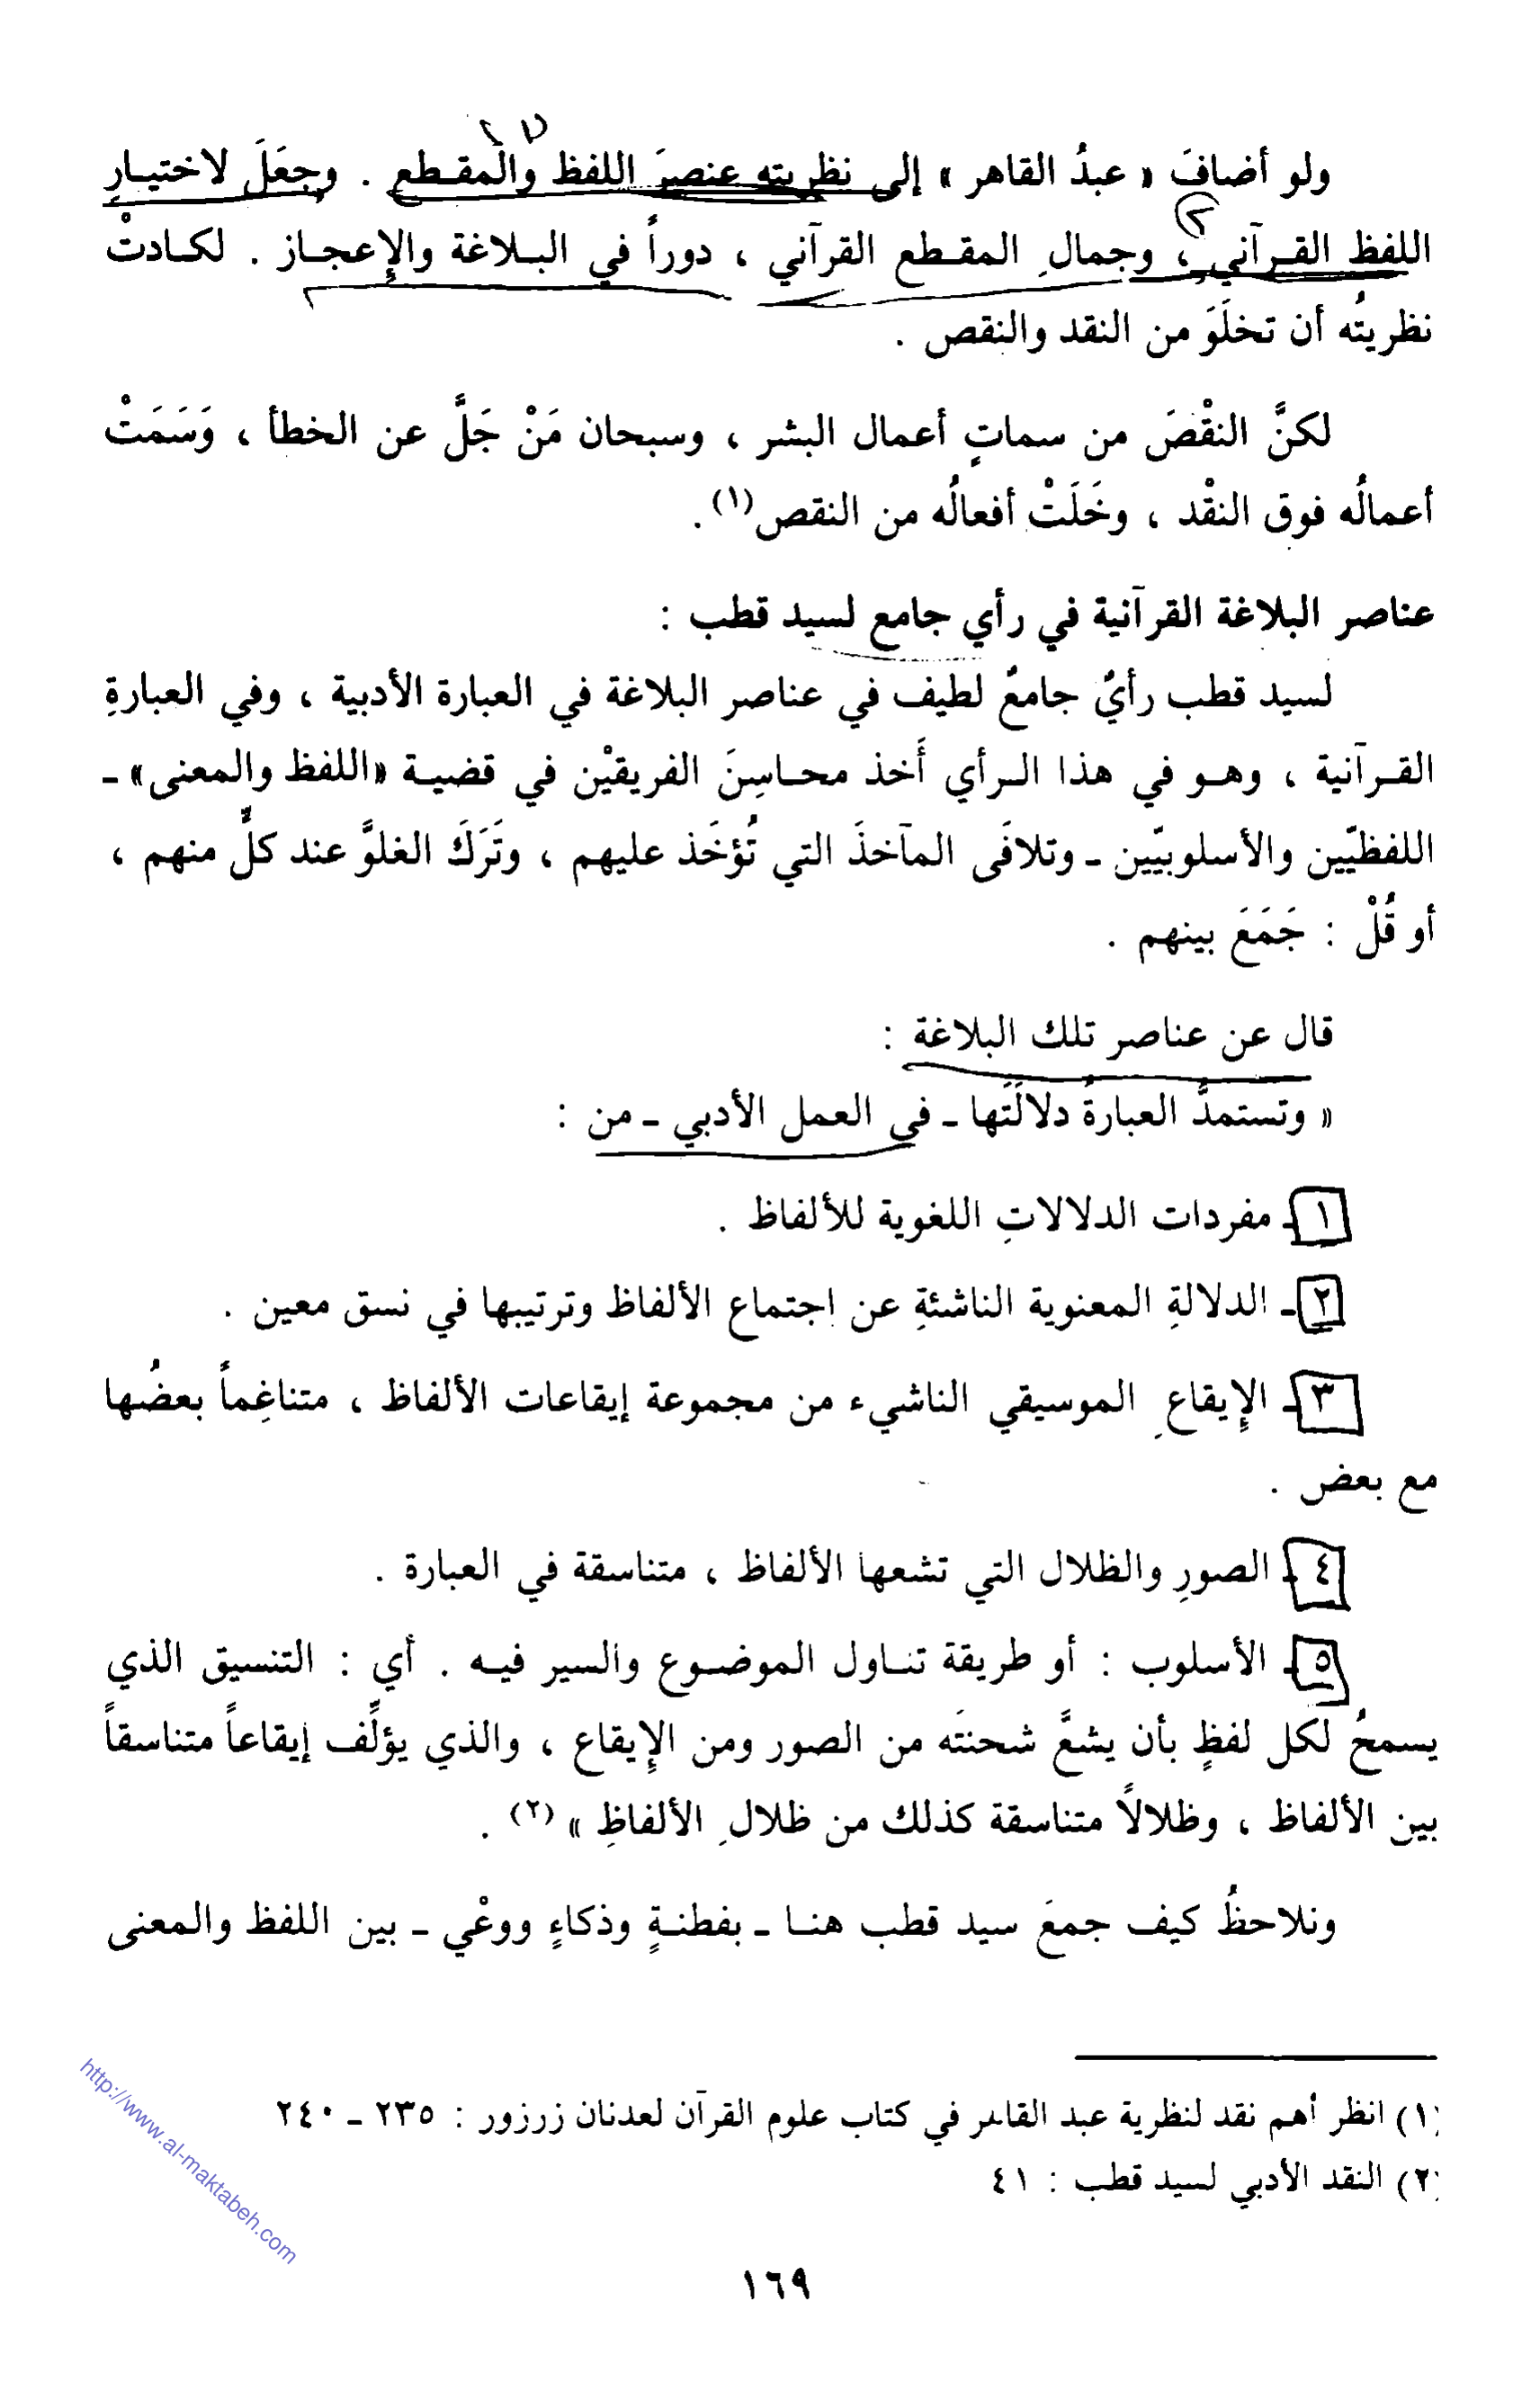 ولو أضافَ « عبدُ القاهر » إلى نظريته عنصرَ اللفظ والمقـطع . وجعَلَ لاختيـارِ
اللفظ القـرآني ، وجمالِ المقـطع القرآني ، دوراً في البـلاغة والإعجـاز . لكـادتْ
نظريتُه أن تخلَوَ من النقد والنقص .
لكنَّ النقْصَ من سماتِ أعمال البشر ، وسبحان مَنْ جَلَّ عن الخطأ ، وَسَمَتْ
أعمالُه فوق النقْد ، وخَلَتْ أفعالُه من النقص(١) .
عناصر البلاغة القرآنية في رأي جامع لسيد قطب :
لسيد قطب رأيٌ جامعٌ لطيف في عناصر البلاغة في العبارة الأدبية ، وفي العبارةِ
القـرآنية ، وهـو في هذا الـرأي أَخذ محـاسِنَ الفريقيْن في قضيـة «اللفظ والمعنى» ـ
اللفظيّين والأسلوبيّين ـ وتلافَى المآخذَ التي تُؤخَذ عليهم ، وتَرَكَ الغلوَّ عند كلٍّ منهم ،
أو قُلْ : جَمَعَ بينهم .
قال عن عناصر تلك البلاغة :
« وتستمدُّ العبارةُ دلالَتَها ـ في العمل الأدبي ـ من :
١ـ مفردات الدلالاتِ اللغوية للألفاظ .
٢ـ الدلالةِ المعنوية الناشئةِ عن اجتماع الألفاظ وترتيبها في نسق معين .
٣ـ الإيقاعِ الموسيقي الناشيء من مجموعة إيقاعات الألفاظ ، متناغِماً بعضُها
مع بعض .
٤ـ الصورِ والظلال التي تشعها الألفاظ ، متناسقة في العبارة .
٥ـ الأسلوب : أو طريقة تنـاول الموضـوع والسير فيـه . أي : التنسيق الذي
يسمحُ لكل لفظٍ بأن يشعَّ شحنتَه من الصور ومن الإيقاع ، والذي يؤلِّف إيقاعاً متناسقاً
بين الألفاظ ، وظلالاً متناسقة كذلك من ظلالِ الألفاظِ » (٢) .
ونلاحظُ كيف جمعَ سيد قطب هنـا ـ بفطنـةٍ وذكاءٍ ووعْي ـ بين اللفظ والمعنى
(١) انظر أهم نقد لنظرية عبد القاهر في كتاب علوم القرآن لعدنان زرزور : ٢٣٥ ـ ٢٤٠
(٢) النقد الأدبي لسيد قطب : ٤١
http://www.al-maktabeh.com
١٦٩